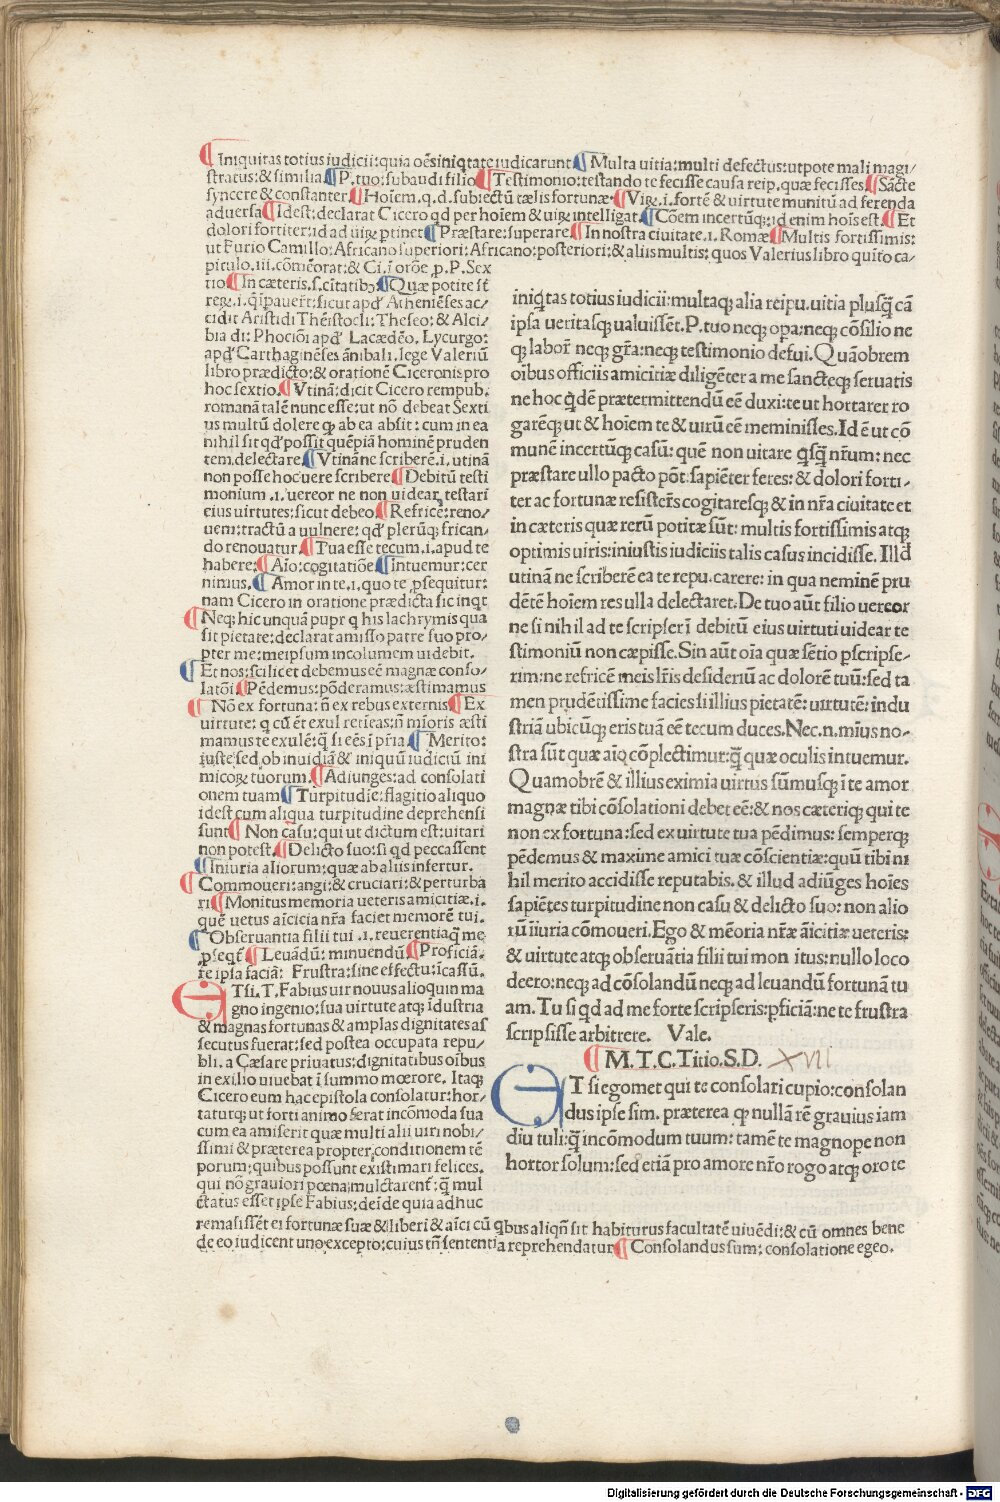 ¶ Iniquitas totius iudicii: quia oēs iniqtate iudicarunt ¶ Multa uitia: multi defectus: utpote mali magi/
stratus: & similia ¶ P. tuo: subaudi filio ¶ Testimonio: testando te fecisse causa reip. quæ fecisses ¶ Sācte
syncere & constanter ¶ Hoiem. q. d. subiectū tælis fortunæ ¶ Viꝝ. i. fortē & uirtute munitū ad ferenda
aduersa ¶ Idest: declarat Cicero qd per hoiem & uiꝝ intelligat ¶ Cōem incertūqꝫ: id enim hoīs est. ¶ Et
dolori fortiter: id ad uiꝝ ptinet ¶ Præstare: superare ¶ In nostra ciuitate. i. Romæ ¶ Multis fortissimis:
ut Furio Camillo: Africano superiori: Africano: posteriori: & aliis multis: quos Valerius libro quīto ca/
pitulo. iii. cōmēorat: & Ci. ī orōe p. P. Sex
tio ¶ In cæteris. s. cītatibꝫ ¶ Quæ potite st̄
reꝝ. i. q̄ ipauert̄: sicut apd' Atheniēses ac/
cidit Aristidi Thēistocli: Theseo: & Alci/
biadi: Phociōi apd' Lacædēo. Lycurgo:
apd' Carthaginēses ānibali. lege Valeriū
libro prædicto: & orationē Ciceronis pro
hoc sextio. ¶ Vtinā: dicit Cicero rempub.
romanā talē nunc esse: ut nō debeat Sexti
us multū dolere qꝫ ab ea absit: cum in ea
nihil sit qd' possit quēpiā hominē pruden
tem delectare ¶ Vtinā ne scriberē. i. utinā
non posse hoc uere scribere ¶ Debitū testi
monium .i. uereor ne non uidear testari
eius uirtutes: sicut debeo ¶ Refricē: reno/
uem: tractū a uulnere: qd' plerūqꝫ frican/
do renouatur ¶ Tua esse tecum. i. apud te
habere: ¶ Aio: cogitatiōe ¶ intuemur: cer
nimus. ¶ Amor in te. i. quo te psequitur:
nam Cicero in oratione prædicta sic inqt
¶ Neqꝫ hic unquā pupr q his lachrymis qua
sit pietate: declarat amisso patre suo pro/
pter me: meipsum incolumem uidebit.
¶ Et nos: scilicet debemus eē magnæ conso/
latōi ¶ Pēdemus: pōderamus: æstimamus
¶ Nō ex fortuna: ñ ex rebus externis ¶ Ex
uirtute: q cū ēt exul retieas: ñ mīoris æsti
mamus te exulē: q̄ si eēs ī pr̄ia ¶ Merito:
iuste: sed ob inuidiā & iniquū iudiciū ini
micoꝝ tuorum. ¶ Adiunges: ad consolati
onem tuam ¶ Turpitudīe: flagitio aliquo
idest cum aliqua turpitudine deprehensi
sunt ¶ Non casu: qui ut dictum est: uitari
non potest. ¶ Delicto suo: si qd peccassent
¶ Iniuria aliorum: quæ ab aliis infertur.
¶ Commoueri: angi: & cruciari: & perturba
ri ¶ Monitus memoria ueteris amicitiæ. i.
quē uetus aīcicia nr̄a faciet memorē tui.
¶ Obseruantia filii tui .i. reuerentia q̄ me
pseqt̄ ¶ Leuādū: minuendū ¶ Proficiā.
re ipsa faciā: Frustra: sine effectu: īcassū.
ETsi. T. Fabius uir nouus alioquin ma
gno ingenio: sua uirtute atqꝫ īdustria
& magnas fortunas & amplas dignitates as
secutus fuerat: sed postea occupata repu/
bli. a Cæsare priuatus: dignitatibus oībus
in exilio uiuebat ī summo mœrore. Itaqꝫ
Cicero eum hac epistola consolatur: hor/
tatur qꝫ ut forti animo ferat incōmoda sua
cum ea amiserit quæ multi alii uiri nobi/
ssimi & præterea propter conditionem tē
porum: quibus possunt existimari felices.
qui nō grauiori pœna mulctarent̄: q̄ mul
ctatus esset ipse Fabius: deīde quia adhuc
remāsissēt ei fortunæ suæ & liberi & aīci cū qbus aliqñ sit habiturus facultatē uiuēdi: & cū omnes bene
de eo iudicent uno excepto: cuius tñ sententia reprehendatur ¶ Consolandus sum: consolatione egeo.
iniqtas totius iudicii: multaqꝫ alia reipu. uitia plusq̄ cā
ipsa ueritasqꝫ ualuissēt. P. tuo neqꝫ opa: neqꝫ cōsilio ne
qꝫ labor̄ neqꝫ gr̄a: neqꝫ testimonio defui. Quāobrem
oībus officiis amicitiæ diligēter a me sancteqꝫ seruatis
ne hoc qdē prætermittendū eē duxi: te ut hortarer ro
garēqꝫ ut & hoīem te & uirū eē meminisses. Id ē ut cō
munē incertūqꝫ casū: quē non uitare qsq̄ nr̄um: nec
præstare ullo pacto pōt: sapiēter feres: & dolori forti/
ter ac fortunæ resister̄s cogitaresqꝫ & in nr̄a ciuitate et
in cæteris quæ rerū potitæ sūt: multis fortissimis atqꝫ
optimis uiris: iniustis iudiciis talis casus incidisse. Illd
utinā ne scriberē ea te repu. carere: in qua neminē pru
dētē hoīem res ulla delectaret. De tuo aūt filio uereor
ne si nihil ad te scripserī debitū eius uirtuti uidear te
stimoniū non cæpisse. Sin aūt oīa quæ sētio pscripse/
rim: ne refricē meis lr̄is desideriū ac dolorē tuū: sed ta
men prudētissime facies si illius pietatē: uirtutē: indu
striā ubicūqꝫ eris tuā eē tecum duces. Nec. n. mīus no/
stra sūt quæ aīo cōplectimur: q̄ quæ oculis intuemur.
Quamobrē & illius eximia uirtus sūmusqꝫ ī te amor
magnæ tibi cōsolationi debet eē: & nos cæteriqꝫ qui te
non ex fortuna: sed ex uirtute tua pēdimus: semperqꝫ
pēdemus & maxime amici tuæ cōscientiæ: quū tibi ni
hil merito accidisse reputabis. & illud adiūges hoīes
sapiētes turpitudine non casu & delicto suo: non alio
rū iiuria cōmoueri. Ego & mēoria nr̄æ āicitiæ ueteris:
& uirtute atqꝫ obseruātia filii tui monitus: nullo loco
deero: neqꝫ ad cōsolandū neqꝫ ad leuandū fortunā tu
am. Tu si qd ad me forte scripseris: pficiā: ne te frustra
scripsisse arbitrere. Vale.
¶ M. T. C. Titio. S. D. XVII
ET si egomet qui te consolari cupio: consolan
dus ipse sim. præterea qꝫ nullā rē grauius iam
diu tuli: q̄ incōmodum tuum: tamē te magnope non
hortor solum: sed etiā pro amore nr̄o rogo atqꝫ oro te
Digitalisierung gefördert durch die Deutsche Forschungsgemeinschaft - DFG